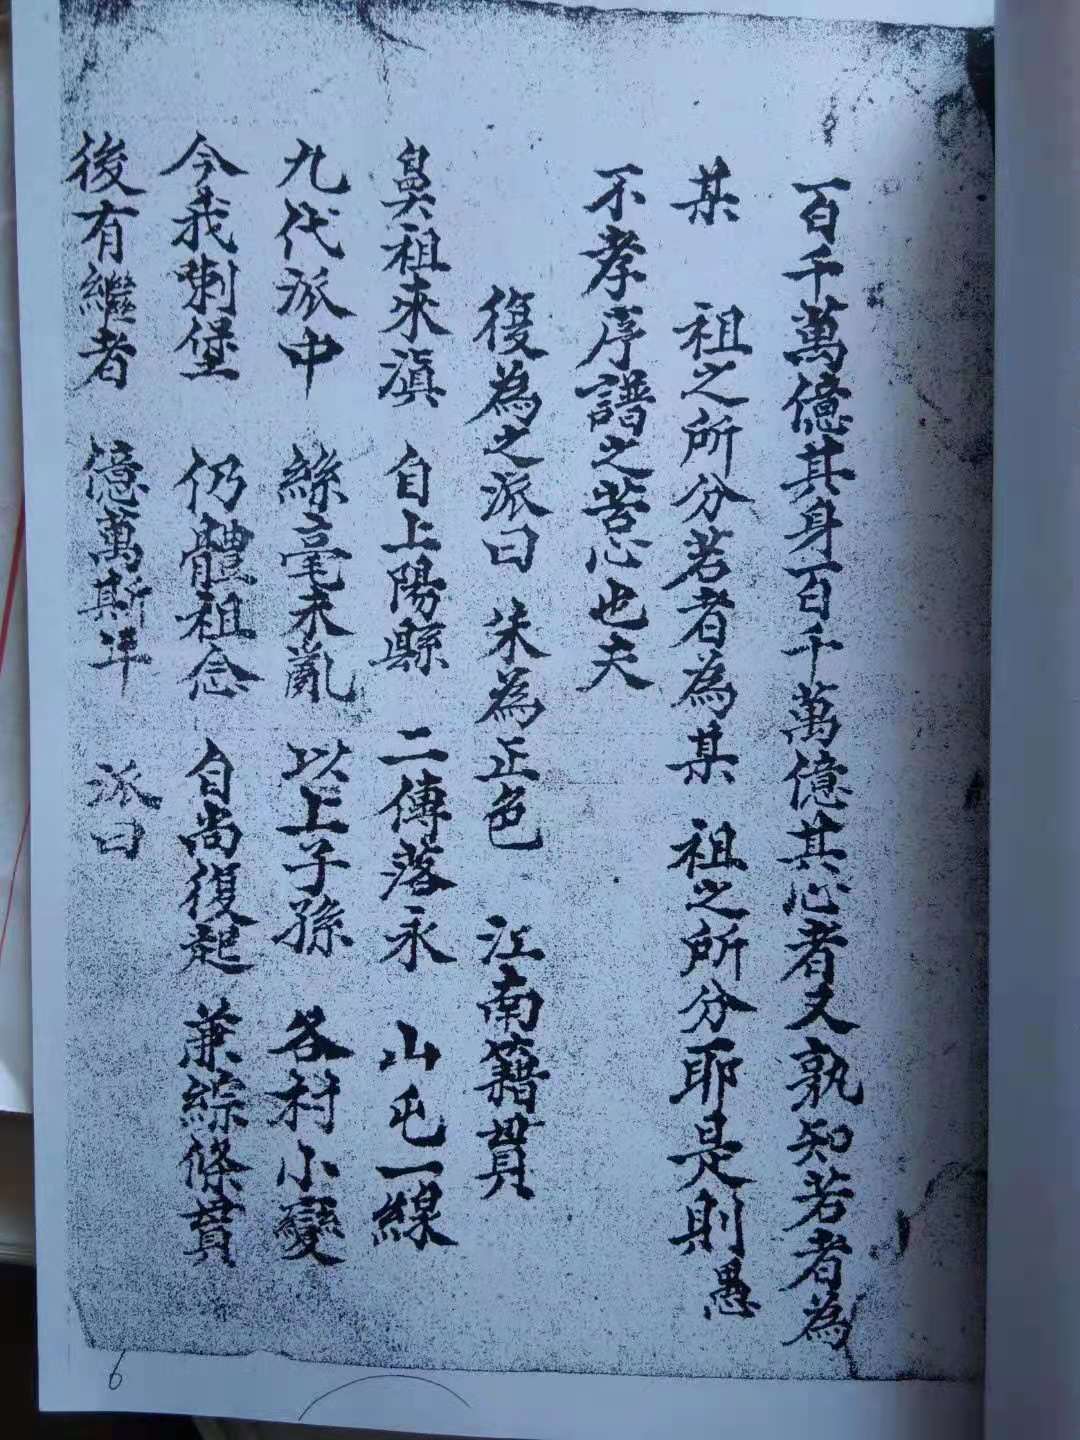 百千萬億其身百千萬億其心者又孰知若者為
某 祖之所分若者為某 祖之所分耶是則愚
不孝序譜之苦心也夫
復為之派曰 朱為正色 江南籍貫
鼻祖來滇 自上陽縣 二傳落永 山屯一線
九代派中 絲毫未亂 以上子孫 各村小變
今我喇堡 仍體祖念 自尚復起 兼綜條貫
後有繼者 億萬斯年 派曰
6